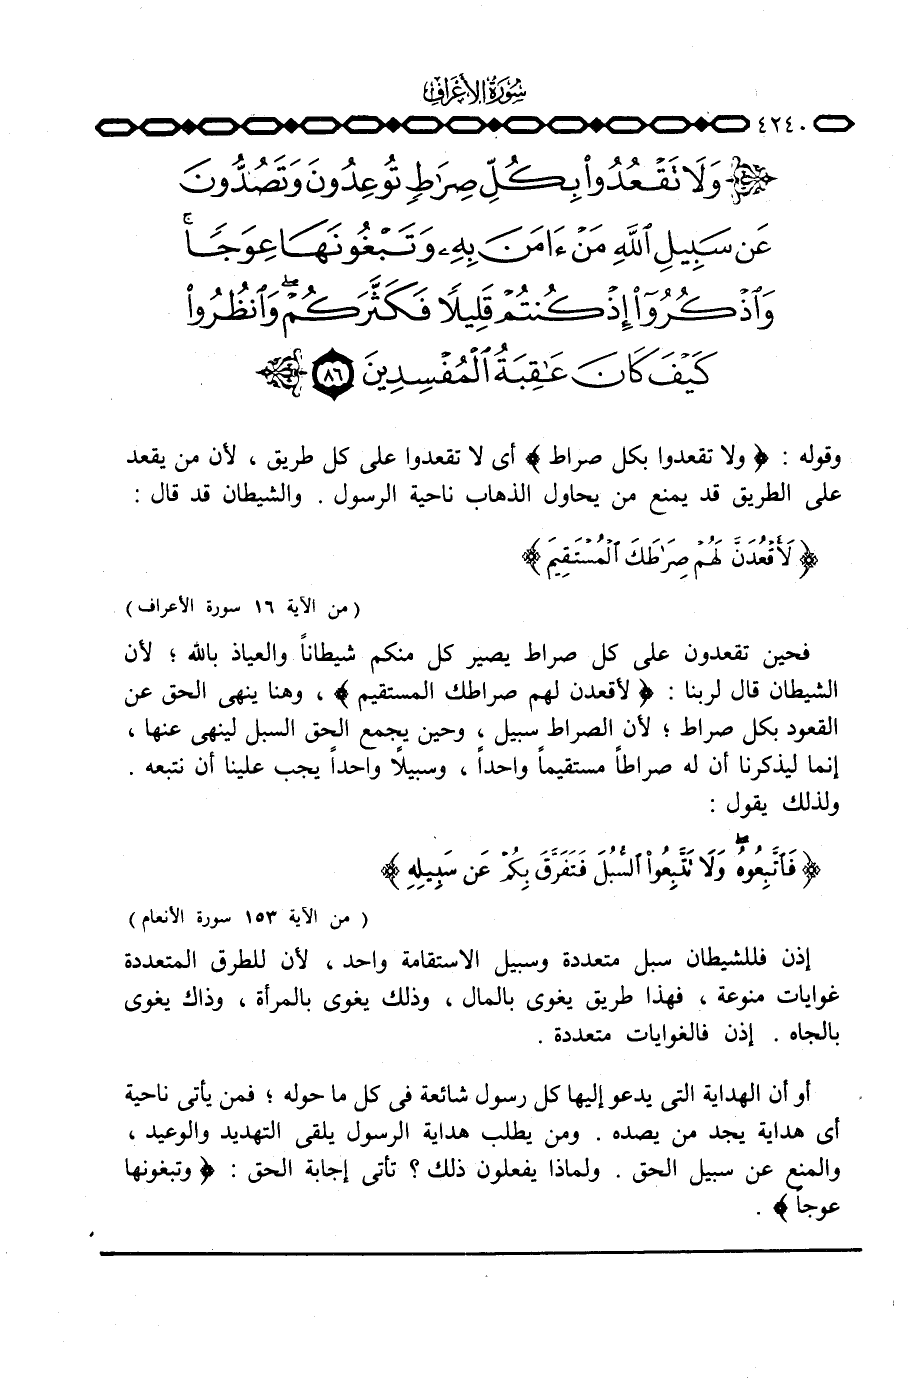 سُورَةُ الأَعْرَافِ
٤٢٤٠
وَلَا تَقْعُدُوا۟ بِكُلِّ صِرَٰطٍ تُوعِدُونَ وَتَصُدُّونَ
عَن سَبِيلِ ٱللَّهِ مَنْ ءَامَنَ بِهِۦ وَتَبْغُونَهَا عِوَجًا ۚ
وَٱذْكُرُوٓا۟ إِذْ كُنتُمْ قَلِيلًا فَكَثَّرَكُمْ ۖ وَٱنظُرُوا۟
كَيْفَ كَانَ عَٰقِبَةُ ٱلْمُفْسِدِينَ ٨٦
وقوله : ﴿ ولا تقعدوا بكل صراط ﴾ أى لا تقعدوا على كل طريق ، لأن من يقعد
على الطريق قد يمنع من يحاول الذهاب ناحية الرسول . والشيطان قد قال :
﴿ لَأَقْعُدَنَّ لَهُمْ صِرَٰطَكَ ٱلْمُسْتَقِيمَ ﴾
( من الآية ١٦ سورة الأعراف )
فحين تقعدون على كل صراط يصير كل منكم شيطاناً والعياذ بالله ؛ لأن
الشيطان قال لربنا : ﴿ لأقعدن لهم صراطك المستقيم ﴾ ، وهنا ينهى الحق عن
القعود بكل صراط ؛ لأن الصراط سبيل ، وحين يجمع الحق السبل لينهى عنها ،
إنما ليذكرنا أن له صراطاً مستقيماً واحداً ، وسبيلاً واحداً يجب علينا أن نتبعه .
ولذلك يقول :
﴿ فَٱتَّبِعُوهُ ۖ وَلَا تَتَّبِعُوا۟ ٱلسُّبُلَ فَتَفَرَّقَ بِكُمْ عَن سَبِيلِهِ ﴾
( من الآية ١٥٣ سورة الأنعام )
إذن فللشيطان سبل متعددة وسبيل الاستقامة واحد ، لأن للطرق المتعددة
غوايات منوعة ، فهذا طريق يغوى بالمال ، وذلك يغوى بالمرأة ، وذاك يغوى
بالجاه . إذن فالغوايات متعددة .
أو أن الهداية التى يدعو إليها كل رسول شائعة فى كل ما حوله ؛ فمن يأتى ناحية
أى هداية يجد من يصده . ومن يطلب هداية الرسول يلقى التهديد والوعيد ،
والمنع عن سبيل الحق . ولماذا يفعلون ذلك ؟ تأتى إجابة الحق : ﴿ وتبغونها
عوجاً ﴾ .